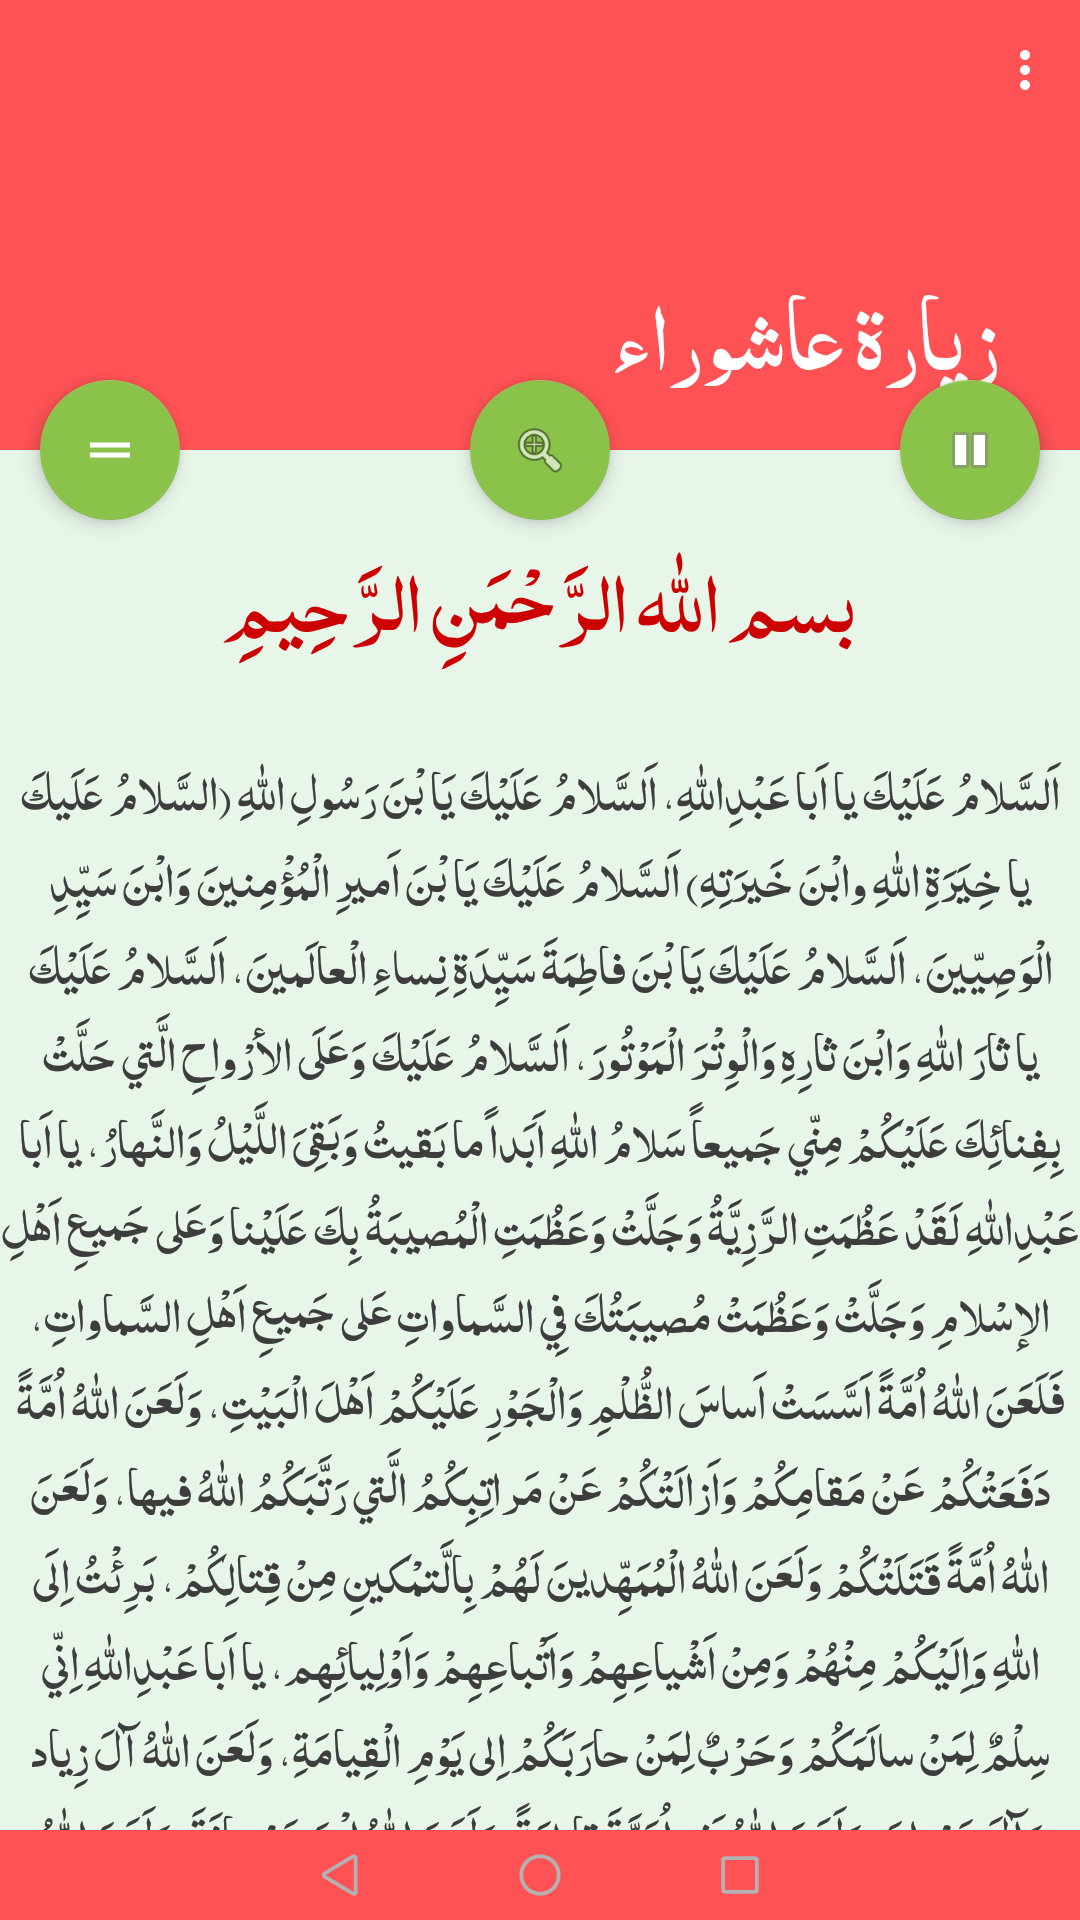 زيارة عاشوراء
بسم الله الرَّحْمَنِ الرَّحِيمِ
اَلسَّلامُ عَلَيْكَ يا اَبا عَبْدِاللهِ، اَلسَّلامُ عَلَيْكَ يَا بْنَ رَسُولِ اللهِ (السَّلامُ عَلَيكَ
يا خِيَرَةِ اللهِ وابْنَ خَيرَتِهِ) اَلسَّلامُ عَلَيْكَ يَا بْنَ اَميرِ الْمُؤْمِنينَ وَابْنَ سَيِّدِ
الْوَصِيّينَ، اَلسَّلامُ عَلَيْكَ يَا بْنَ فاطِمَةَ سَيِّدَةِ نِساءِ الْعالَمينَ، اَلسَّلامُ عَلَيْكَ
يا ثارَ اللهِ وَابْنَ ثارِهِ وَالْوِتْرَ الْمَوْتُورَ، اَلسَّلامُ عَلَيْكَ وَعَلَى الأرْواحِ الَّتي حَلَّتْ
بِفِنائِكَ عَلَيْكُمْ مِنّي جَميعاً سَلامُ اللهِ اَبَداً ما بَقيتُ وَبَقِىَ اللَّيْلُ وَالنَّهارُ، يا اَبا
عَبْدِاللهِ لَقَدْ عَظُمَتِ الرَّزِيَّةُ وَجَلَّتْ وَعَظُمَتِ الْمُصيبَةُ بِكَ عَلَيْنا وَعَلى جَميعِ اَهْلِ
الإسْلامِ وَجَلَّتْ وَعَظُمَتْ مُصيبَتُكَ فِي السَّماواتِ عَلى جَميعِ اَهْلِ السَّماواتِ،
فَلَعَنَ اللهُ اُمَّةً اَسَّسَتْ اَساسَ الظُّلْمِ وَالْجَوْرِ عَلَيْكُمْ اَهْلَ الْبَيْتِ، وَلَعَنَ اللهُ اُمَّةً
دَفَعَتْكُمْ عَنْ مَقامِكُمْ وَاَزالَتْكُمْ عَنْ مَراتِبِكُمُ الَّتي رَتَّبَكُمُ اللهُ فيها، وَلَعَنَ
اللهُ اُمَّةً قَتَلَتْكُمْ وَلَعَنَ اللهُ الْمُمَهِّدينَ لَهُمْ بِالَّتمْكينِ مِنْ قِتالِكُمْ، بَرِئْتُ اِلَى
اللهِ وَاِلَيْكُمْ مِنْهُمْ وَمِنْ اَشْياعِهِمْ وَاَتْباعِهِمْ وَاَوْلِيائِهِم، يا اَبا عَبْدِاللهِ اِنّي
سِلْمٌ لِمَنْ سالَمَكُمْ وَحَرْبٌ لِمَنْ حارَبَكُمْ اِلى يَوْمِ الْقِيامَةِ، وَلَعَنَ اللهُ آلَ زِياد